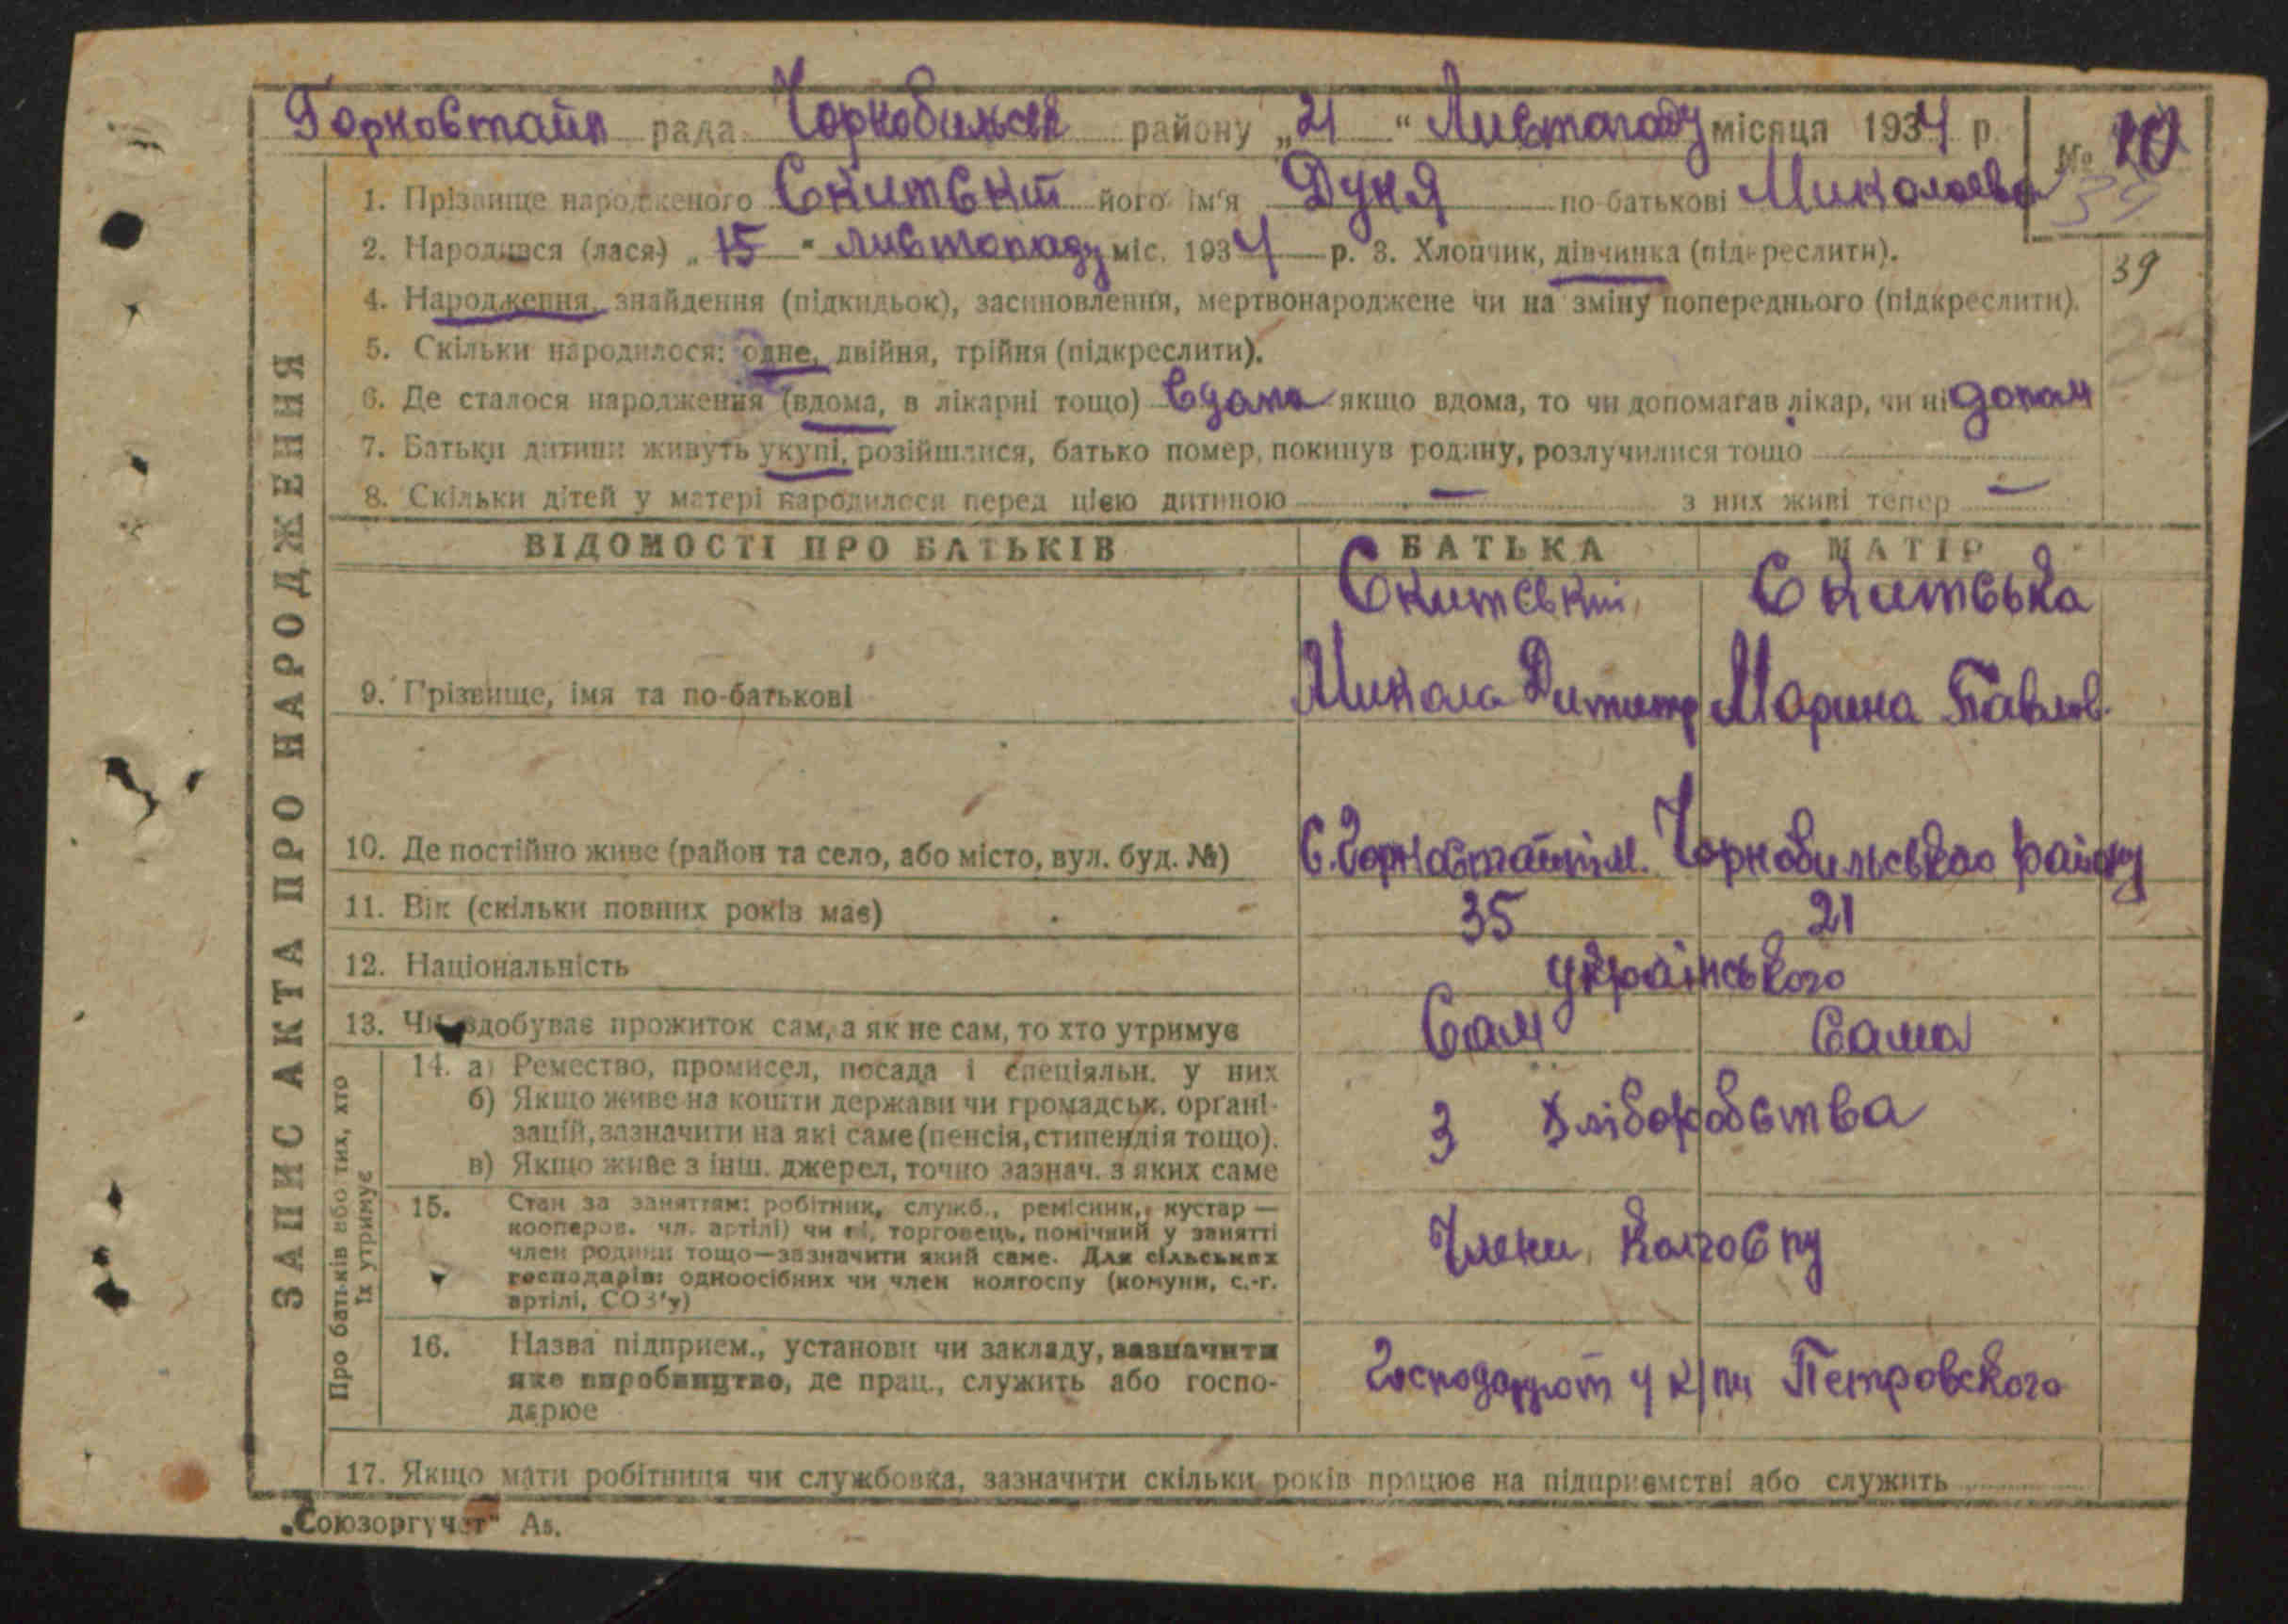 Горностайп рада Чорнобильськ району „21“ Листопаду місяця 1934 р. № 10
39
1. Прізвище народженого Скитскт його ім'я Дуня по батькові Миколаева
2. Народився (лася) „15“ листопаду міс. 1934 р. 3. Хлопчик, дівчинка (підкреслити).
39
4. Народження, знайдення (підкидьок), засиновлення, мертвонароджене чи на зміну попереднього (підкреслити).
5. Скільки народилося: одне, двійня, трійня (підкреслити).
6. Де сталося народження (вдома, в лікарні тощо) вдома якщо вдома, то чи допомагав лікар, чи ні допом
7. Батьки дитини живуть укупі, розійшлися, батько помер, покинув родину, розлучилися тощо
8. Скільки дітей у матері народилося перед цією дитиною — з них живі тепер —
ВІДОМОСТІ ПРО БАТЬКІВ БАТЬКА МАТІР
Скитський Скитська
9. Прізвище, імя та по-батькові Микола Дмитр Марина Павлов.
10. Де постійно живе (район та село, або місто, вул. буд. №) С. Горностайпіл. Чорнобильського району
11. Вік (скільки повних років має) 35 21
12. Національність українського
13. Чи здобуває прожиток сам, а як не сам, то хто утримує Сам Сама
14. а) Ремество, промисел, посада і спеціяльн. у них
б) Якщо живе на кошти держави чи громадськ. органі-
зацій, зазначити на які саме (пенсія, стипендія тощо). З хліборобства
в) Якщо живе з інш. джерел, точно зазнач. з яких саме
15. Стан за заняттям: робітник, служб., ремісник, кустар —
кооперов. чл. артілі) чи ні, торговець, помічний у занятті
член родини тощо—зазначити який саме. Для сільських
господарів: одноосібних чи член колгоспу (комуни, с.-г. Члени колгоспу
артілі, СОЗ'у)
16. Назва підприєм., установи чи закладу, зазначити
яке виробництво, де прац., служить або госпо- Господарюют у к/пи Петровского
дарює
17. Якщо мати робітниця чи службовка, зазначити скільки років працює на підприємстві або служить
ЗАПИС АКТА ПРО НАРОДЖЕННЯ
Про батьків або тих, хто
їх утримує
„Союзоргучет“ А5.